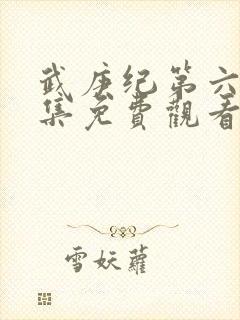 武庚纪第六
集免費觀看
雪妖蘿